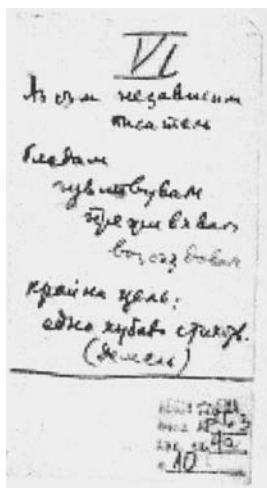 VI
Аз съм независим
писател
Гледам
чувствувам
преживявам
възсъздавам
крайна цель:
една хубаво стихотв.
(Демель)
10